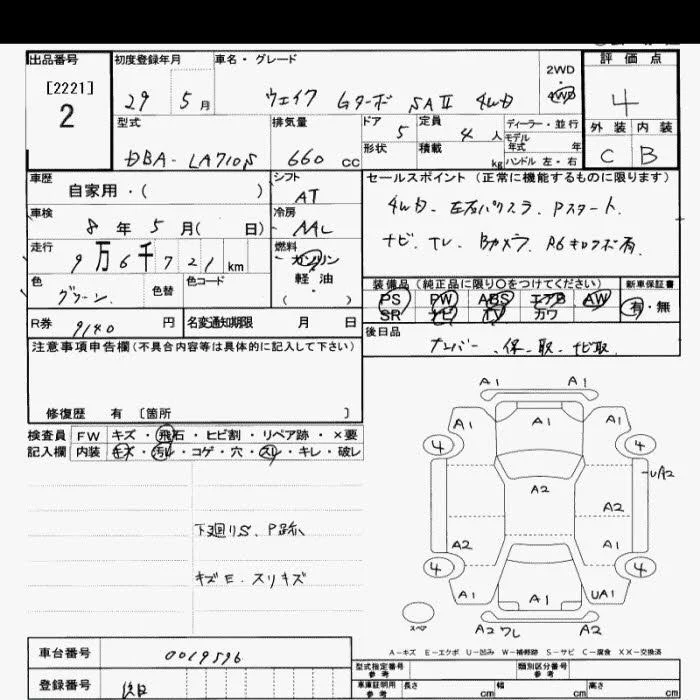 出品番号 初度登録年月 車名・グレード 評価点
[2221]
2
29 5月 ウェイク Gターボ SAⅡ 4WD
2WD
・
4WD
4
型式 排気量 ドア 定員 ディーラー・並行 外装 内装
DBA-LA710S 660cc 5 4人 モデル年式 年
形状 積載 kg ハンドル 左・右
C B
車歴 シフト セールスポイント(正常に機能するものに限ります)
自家用・( ) AT
車検 冷房 4WD. 左右パワスラ. Pスタート.
8年5月( 日) AAC
走行 燃料 ナビ. TV. Bカメラ.
9万6千721km ガソリン
軽・油
・
( )
色 色替 色コード 装備品(純正品に限り○をつけてください) 新車保証書
グリーン PS PW ABS エアB AW 有・無
SR ナビ TV カワ
R券 9140円 名変通知期限 月 日 後日品
ナンバー.保.取.ナビ取
注意事項申告欄(不具合内容等は具体的に記入して下さい)
修復歴 有〔箇所 〕
検査員 FW キズ・飛石・ヒビ割・リペア跡・×要
記入欄 内装 キズ・汚れ・コゲ・穴・スレ・キレ・破レ
下廻りS、P跡
キズE.スリキズ
A1 A1
A1 A1 A1
4 4
UA2
A2
A2
A2 A1
4 4
A1 A1 UA1
A2 ワレ A2
スペア
A-キズ E-エクボ U-凹み W-補修跡 S-サビ C-腐食 XX-交換済
車台番号 0019596
型式指定番号 参考 類別区分番号 参考
登録番号 後日 車庫証明用 参考 長さ cm 幅 cm 高さ cm